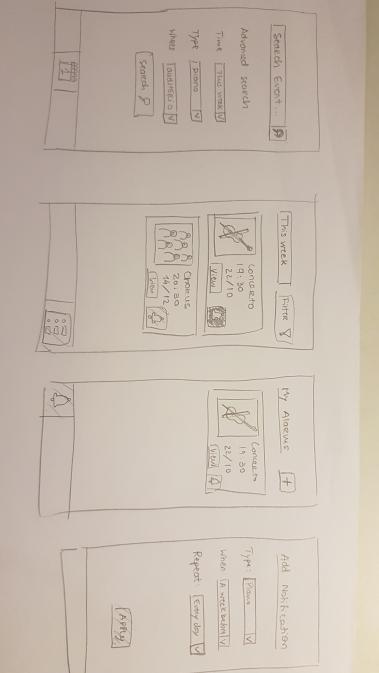 Search Event...
Advanced search
Time This week
Type piano
Where auditório
Search
This week Filter
Concerto
19:30
22/10
View
Chorus
20:30
14/12
View
My Alarms +
Concerto
19:30
22/10
View
Add Notification
Type: Piano
When A week before
Repeat: Every day
APPLY